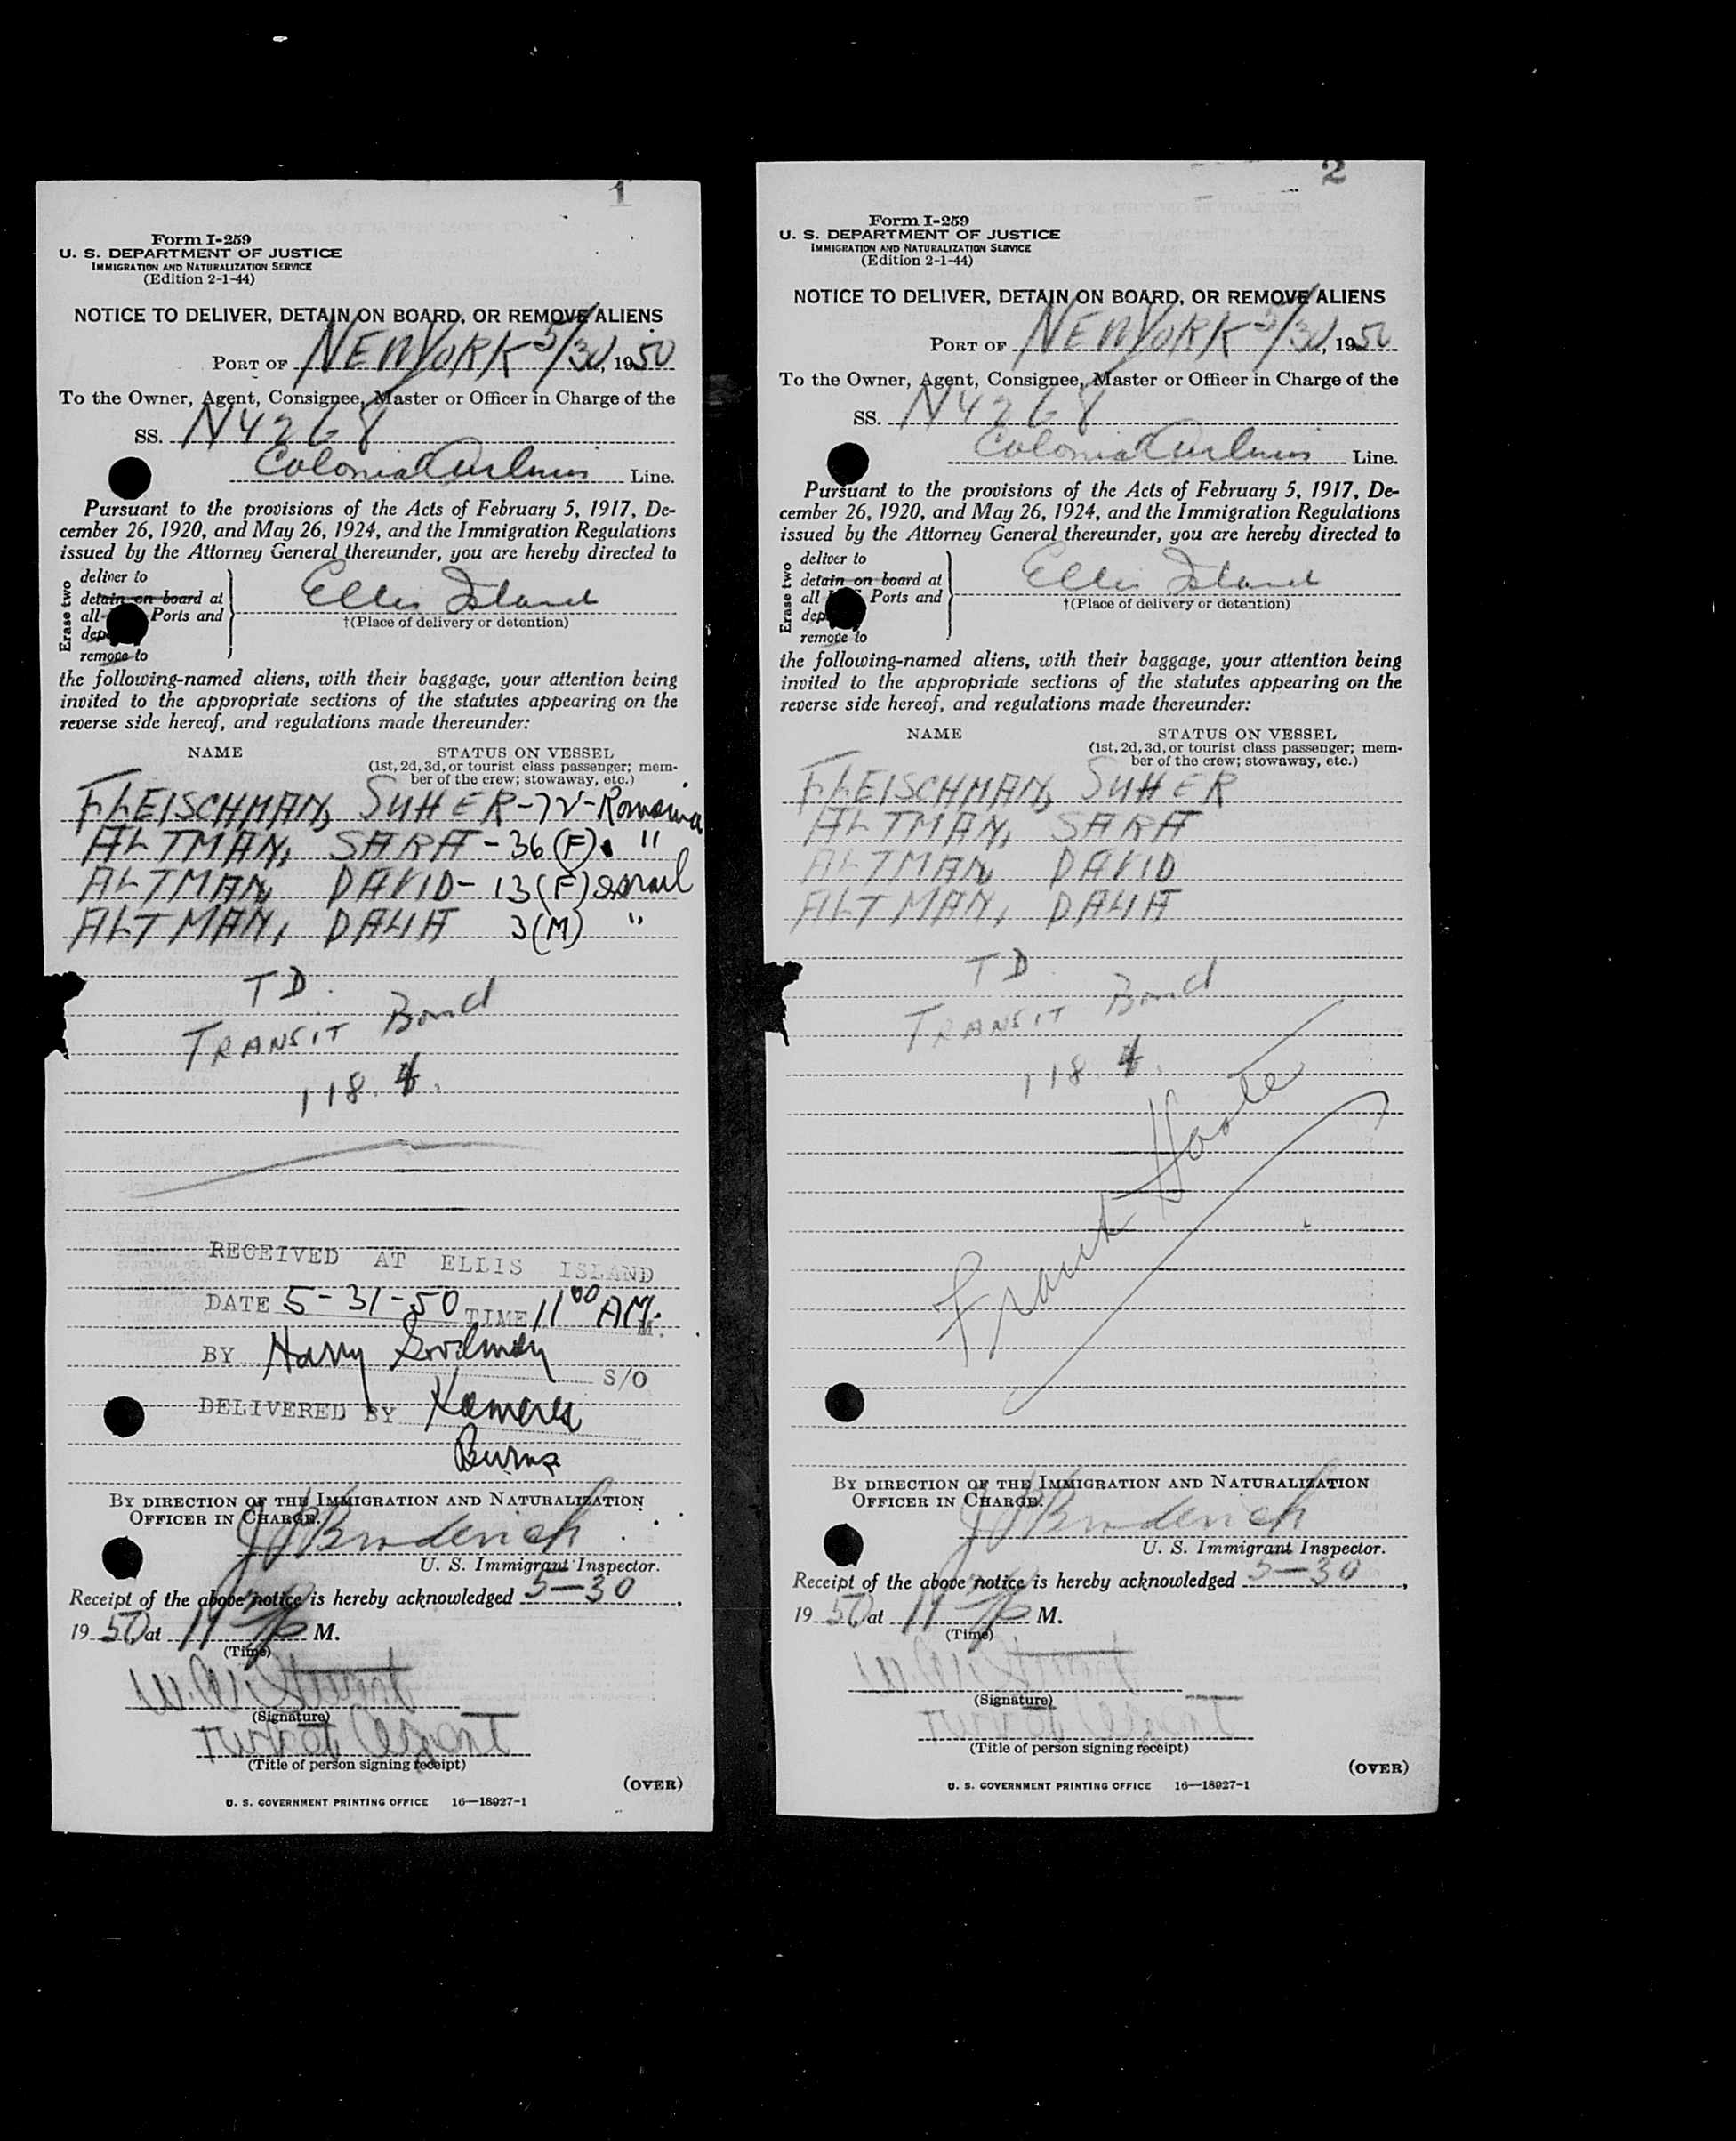 1
Form I-259
U. S. DEPARTMENT OF JUSTICE
IMMIGRATION AND NATURALIZATION SERVICE
(Edition 2-1-44)
NOTICE TO DELIVER, DETAIN ON BOARD, OR REMOVE ALIENS
PORT OF NEW YORK 5/30, 1950
To the Owner, Agent, Consignee, Master or Officer in Charge of the
SS. N4268
Colonial Airlines Line.
Pursuant to the provisions of the Acts of February 5, 1917, De-
cember 26, 1920, and May 26, 1924, and the Immigration Regulations
issued by the Attorney General thereunder, you are hereby directed to
Erase two
deliver to
detain on board at
all Ports and
remove to
Ellis Island
†(Place of delivery or detention)
the following-named aliens, with their baggage, your attention being
invited to the appropriate sections of the statutes appearing on the
reverse side hereof, and regulations made thereunder:
NAME STATUS ON VESSEL
(1st, 2d, 3d, or tourist class passenger; mem-
ber of the crew; stowaway, etc.)
FLEISCHMAN, SUHER - 72 - Romania
ALTMAN, SARA - 36 (F) "
ALTMAN, DAVID - 13 (F) Israel
ALTMAN, DALIA 3 (M) "
TD.
TRANSIT Bond
118.4.
RECEIVED AT ELLIS ISLAND
DATE 5-31-50 TIME 11 00 AM. M.
BY Harry S/O
DELIVERED BY
Burns
BY DIRECTION OF THE IMMIGRATION AND NATURALIZATION
OFFICER IN CHARGE.
J J Broderick
U. S. Immigrant Inspector.
Receipt of the above notice is hereby acknowledged 5-30,
1950, at M.
(Time)
(Signature)
(Title of person signing receipt)
(OVER)
U. S. GOVERNMENT PRINTING OFFICE 16—18927-1
2
Form I-259
U. S. DEPARTMENT OF JUSTICE
IMMIGRATION AND NATURALIZATION SERVICE
(Edition 2-1-44)
NOTICE TO DELIVER, DETAIN ON BOARD, OR REMOVE ALIENS
PORT OF NEW YORK 5/30, 1950
To the Owner, Agent, Consignee, Master or Officer in Charge of the
SS. N4268
Colonial Airlines Line.
Pursuant to the provisions of the Acts of February 5, 1917, De-
cember 26, 1920, and May 26, 1924, and the Immigration Regulations
issued by the Attorney General thereunder, you are hereby directed to
Erase two
deliver to
detain on board at
all Ports and
remove to
Ellis Island
†(Place of delivery or detention)
the following-named aliens, with their baggage, your attention being
invited to the appropriate sections of the statutes appearing on the
reverse side hereof, and regulations made thereunder:
NAME STATUS ON VESSEL
(1st, 2d, 3d, or tourist class passenger; mem-
ber of the crew; stowaway, etc.)
FLEISCHMAN, SUHER
ALTMAN, SARA
ALTMAN, DAVID
ALTMAN, DALIA
TD.
TRANSIT Bond
118.4.
Frank
BY DIRECTION OF THE IMMIGRATION AND NATURALIZATION
OFFICER IN CHARGE.
J J Broderick
U. S. Immigrant Inspector.
Receipt of the above notice is hereby acknowledged 5-30,
1950, at M.
(Time)
(Signature)
(Title of person signing receipt)
(OVER)
U. S. GOVERNMENT PRINTING OFFICE 16—18927-1